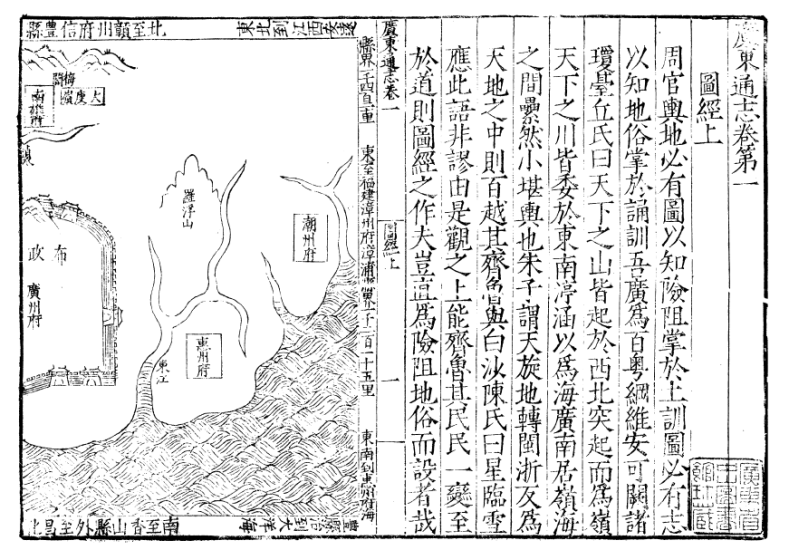 廣東通志卷第一
圖經上
周官輿地必有圖以知險阻掌於土訓圖必有志
以知地俗掌於誦訓吾廣為百粤綱維安可闕諸
瓊臺丘氏曰天下之山皆起於西北突起而為嶺
天下之川皆委於東南渟涵以為海廣南居嶺海
之間纍然小堪輿也朱子謂天旋地轉閩浙反為
天地之中則百越其齊魯與白沙陳氏曰星臨雪
應此語非謬由是觀之上能齊魯其民民一變至
於道則圖經之作夫豈直為險阻地俗而設者哉
廣東通志卷一
圖經上
一
東北到江西安遠
縣界一千四百里
東至福建漳州府漳浦縣界一千二百二十五里
東南到惠州府海
豐縣治到大洋海
北至贛州府信豐縣
南至香山縣外
梅關
大庾嶺
南雄府
羅浮山
潮州府
惠州府
東江
布
政
廣州府